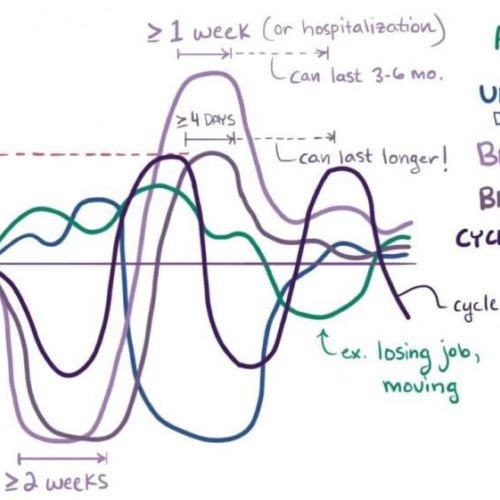 ≥ 1 week (or hospitalization)
can last 3-6 mo.
≥4 DAYS
can last longer!
cycle
ex. losing job,
moving
≥2 weeks